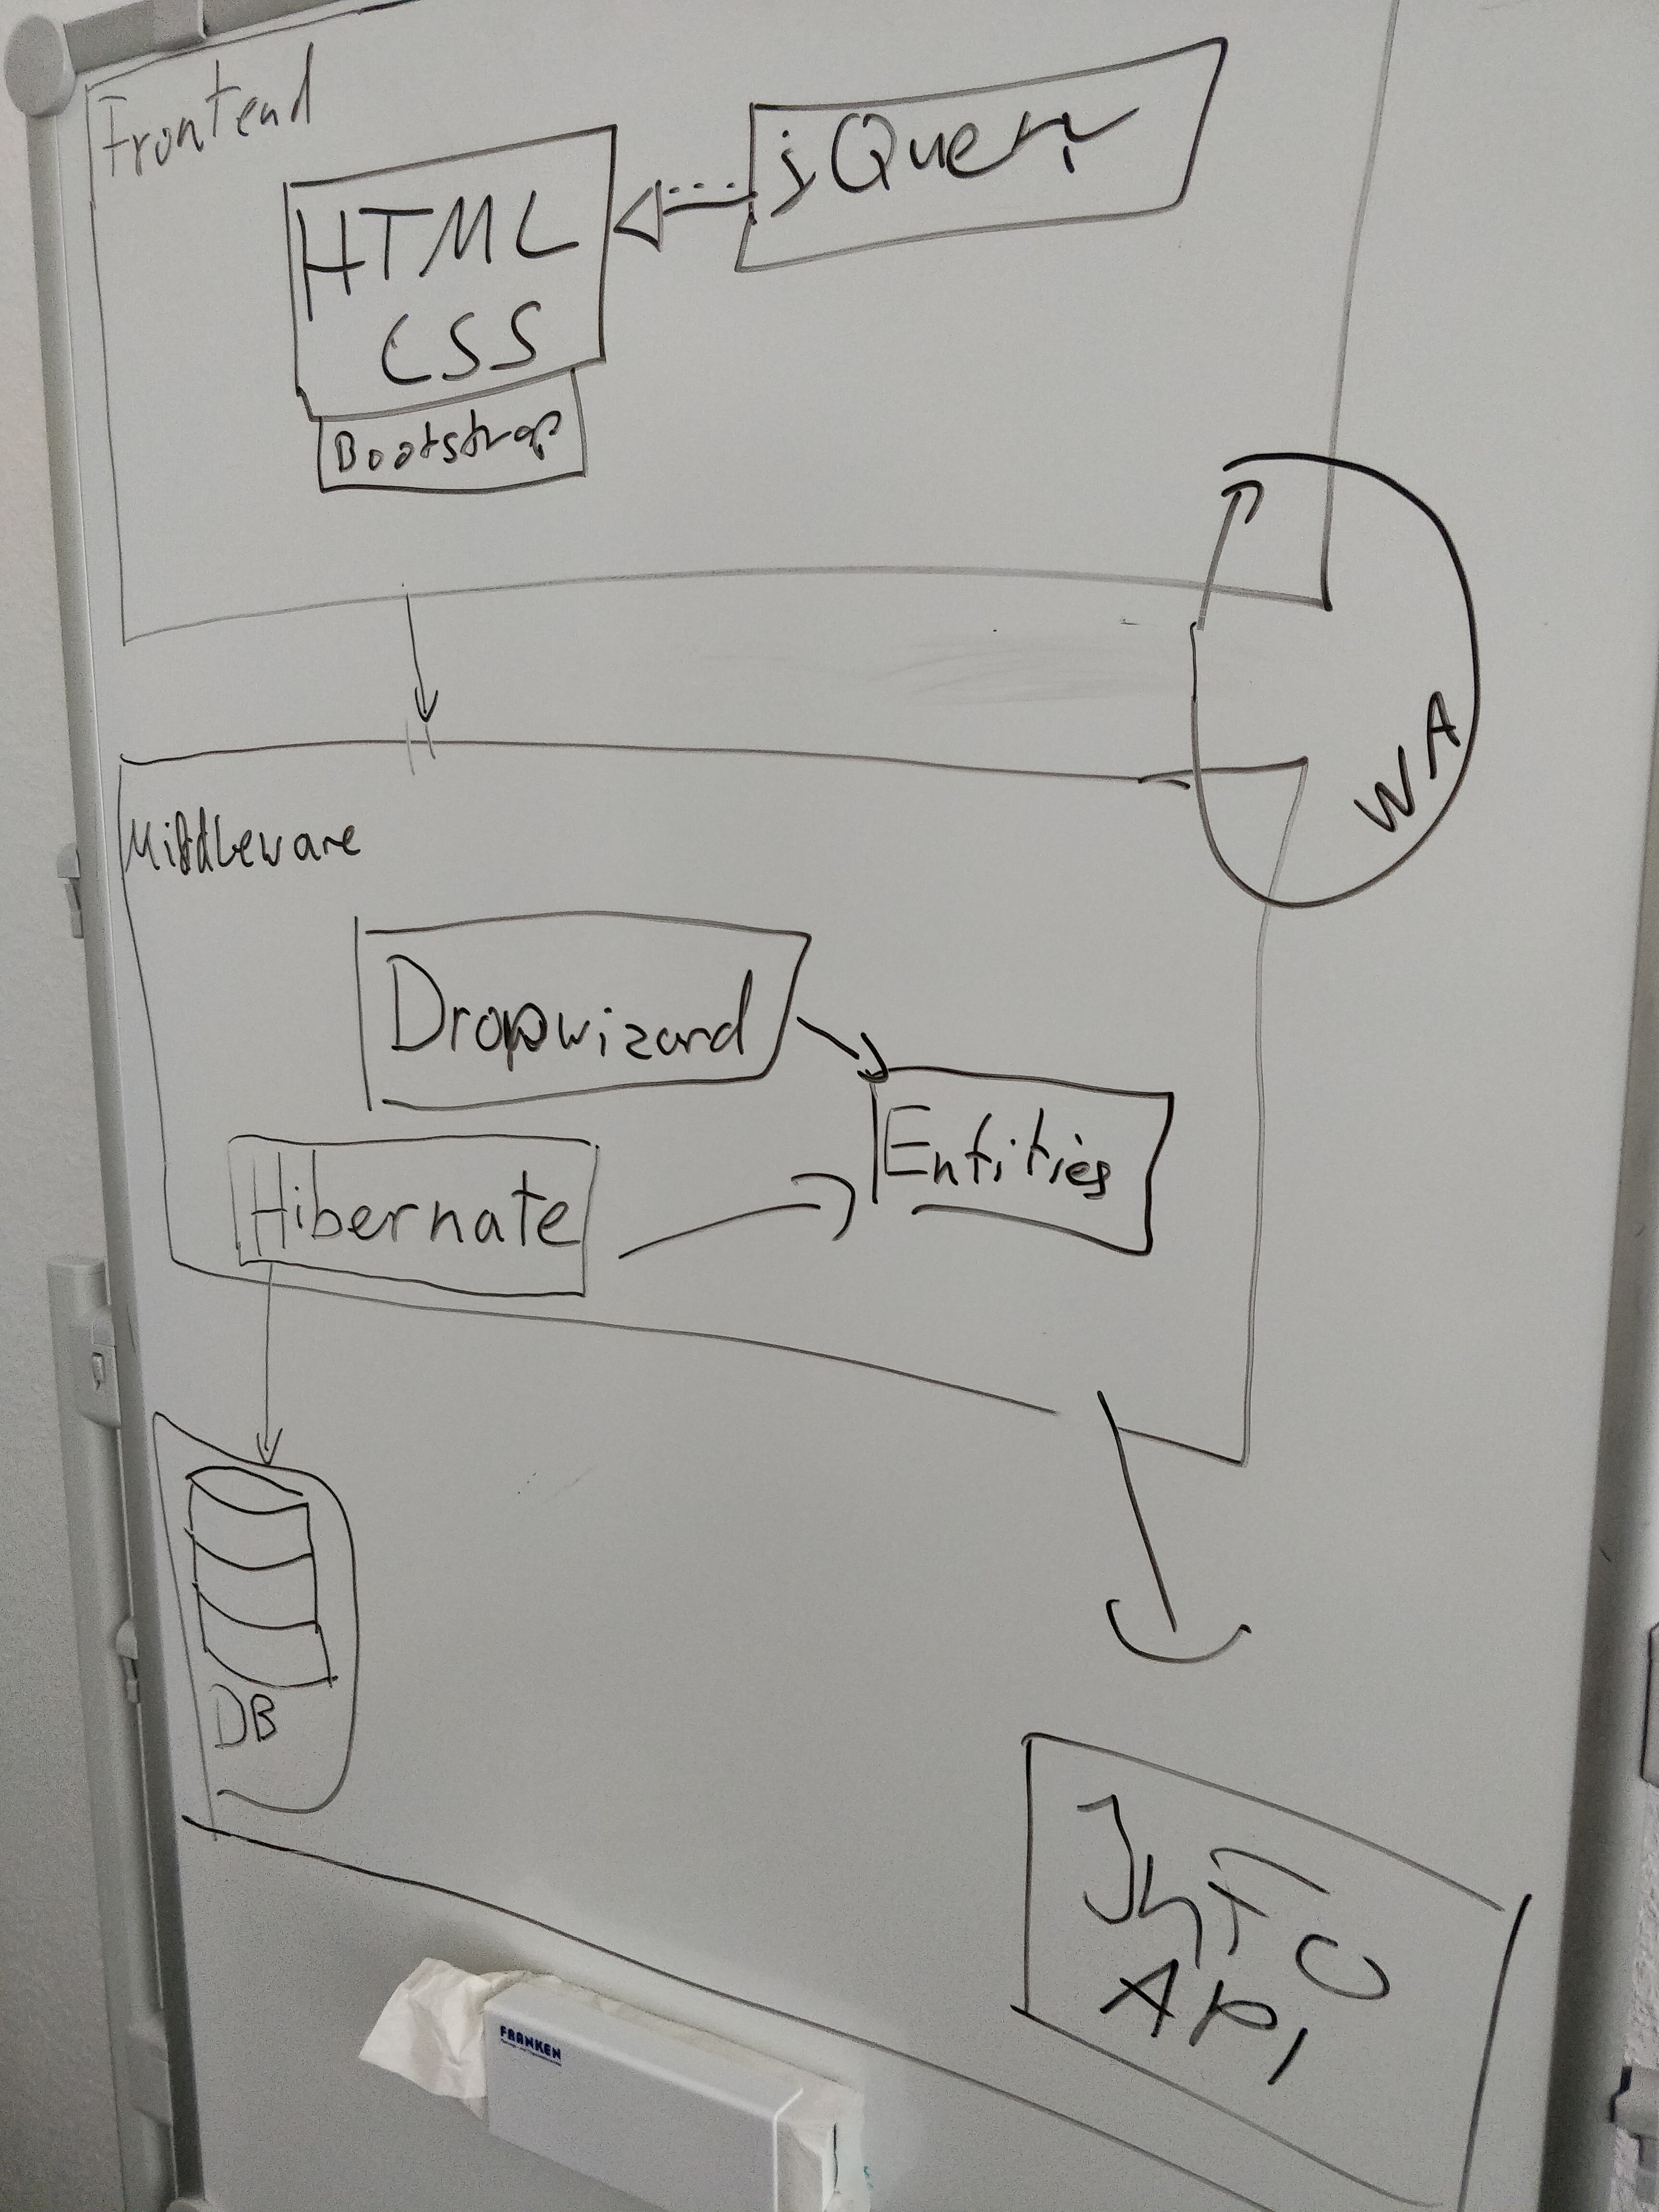 Frontend
jQuery
HTML
CSS
Bootstrap
WA
Middleware
Dropwizard
Entities
Hibernate
DB
API
FRANKEN